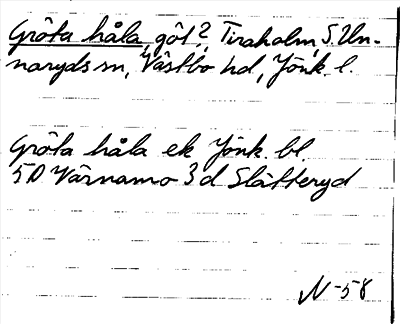 Gröta håla, göl?, Tiraholm, S. Un-
naryds sn, Västbo hd, Jönk. l.
Gröta håla ek Jönk. bl.
5D Värnamo 3d Slätteryd
N-58